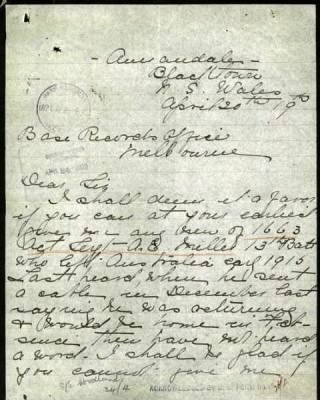 - Annandale -
Blacktown
N. S. Wales
April 20th
Base Records Office
Melbourne
Dear Sir
I shall deem it a favor
if you can at your earliest
give me any news of 1663
Act Sergt A.B. Miller 13th Batt
who left Australia early 1915
Last heard, when he sent
a cable in December last
saying he was returning
& would be home in Feb-
since then have not heard
a word. I shall be glad if
you cannot give me